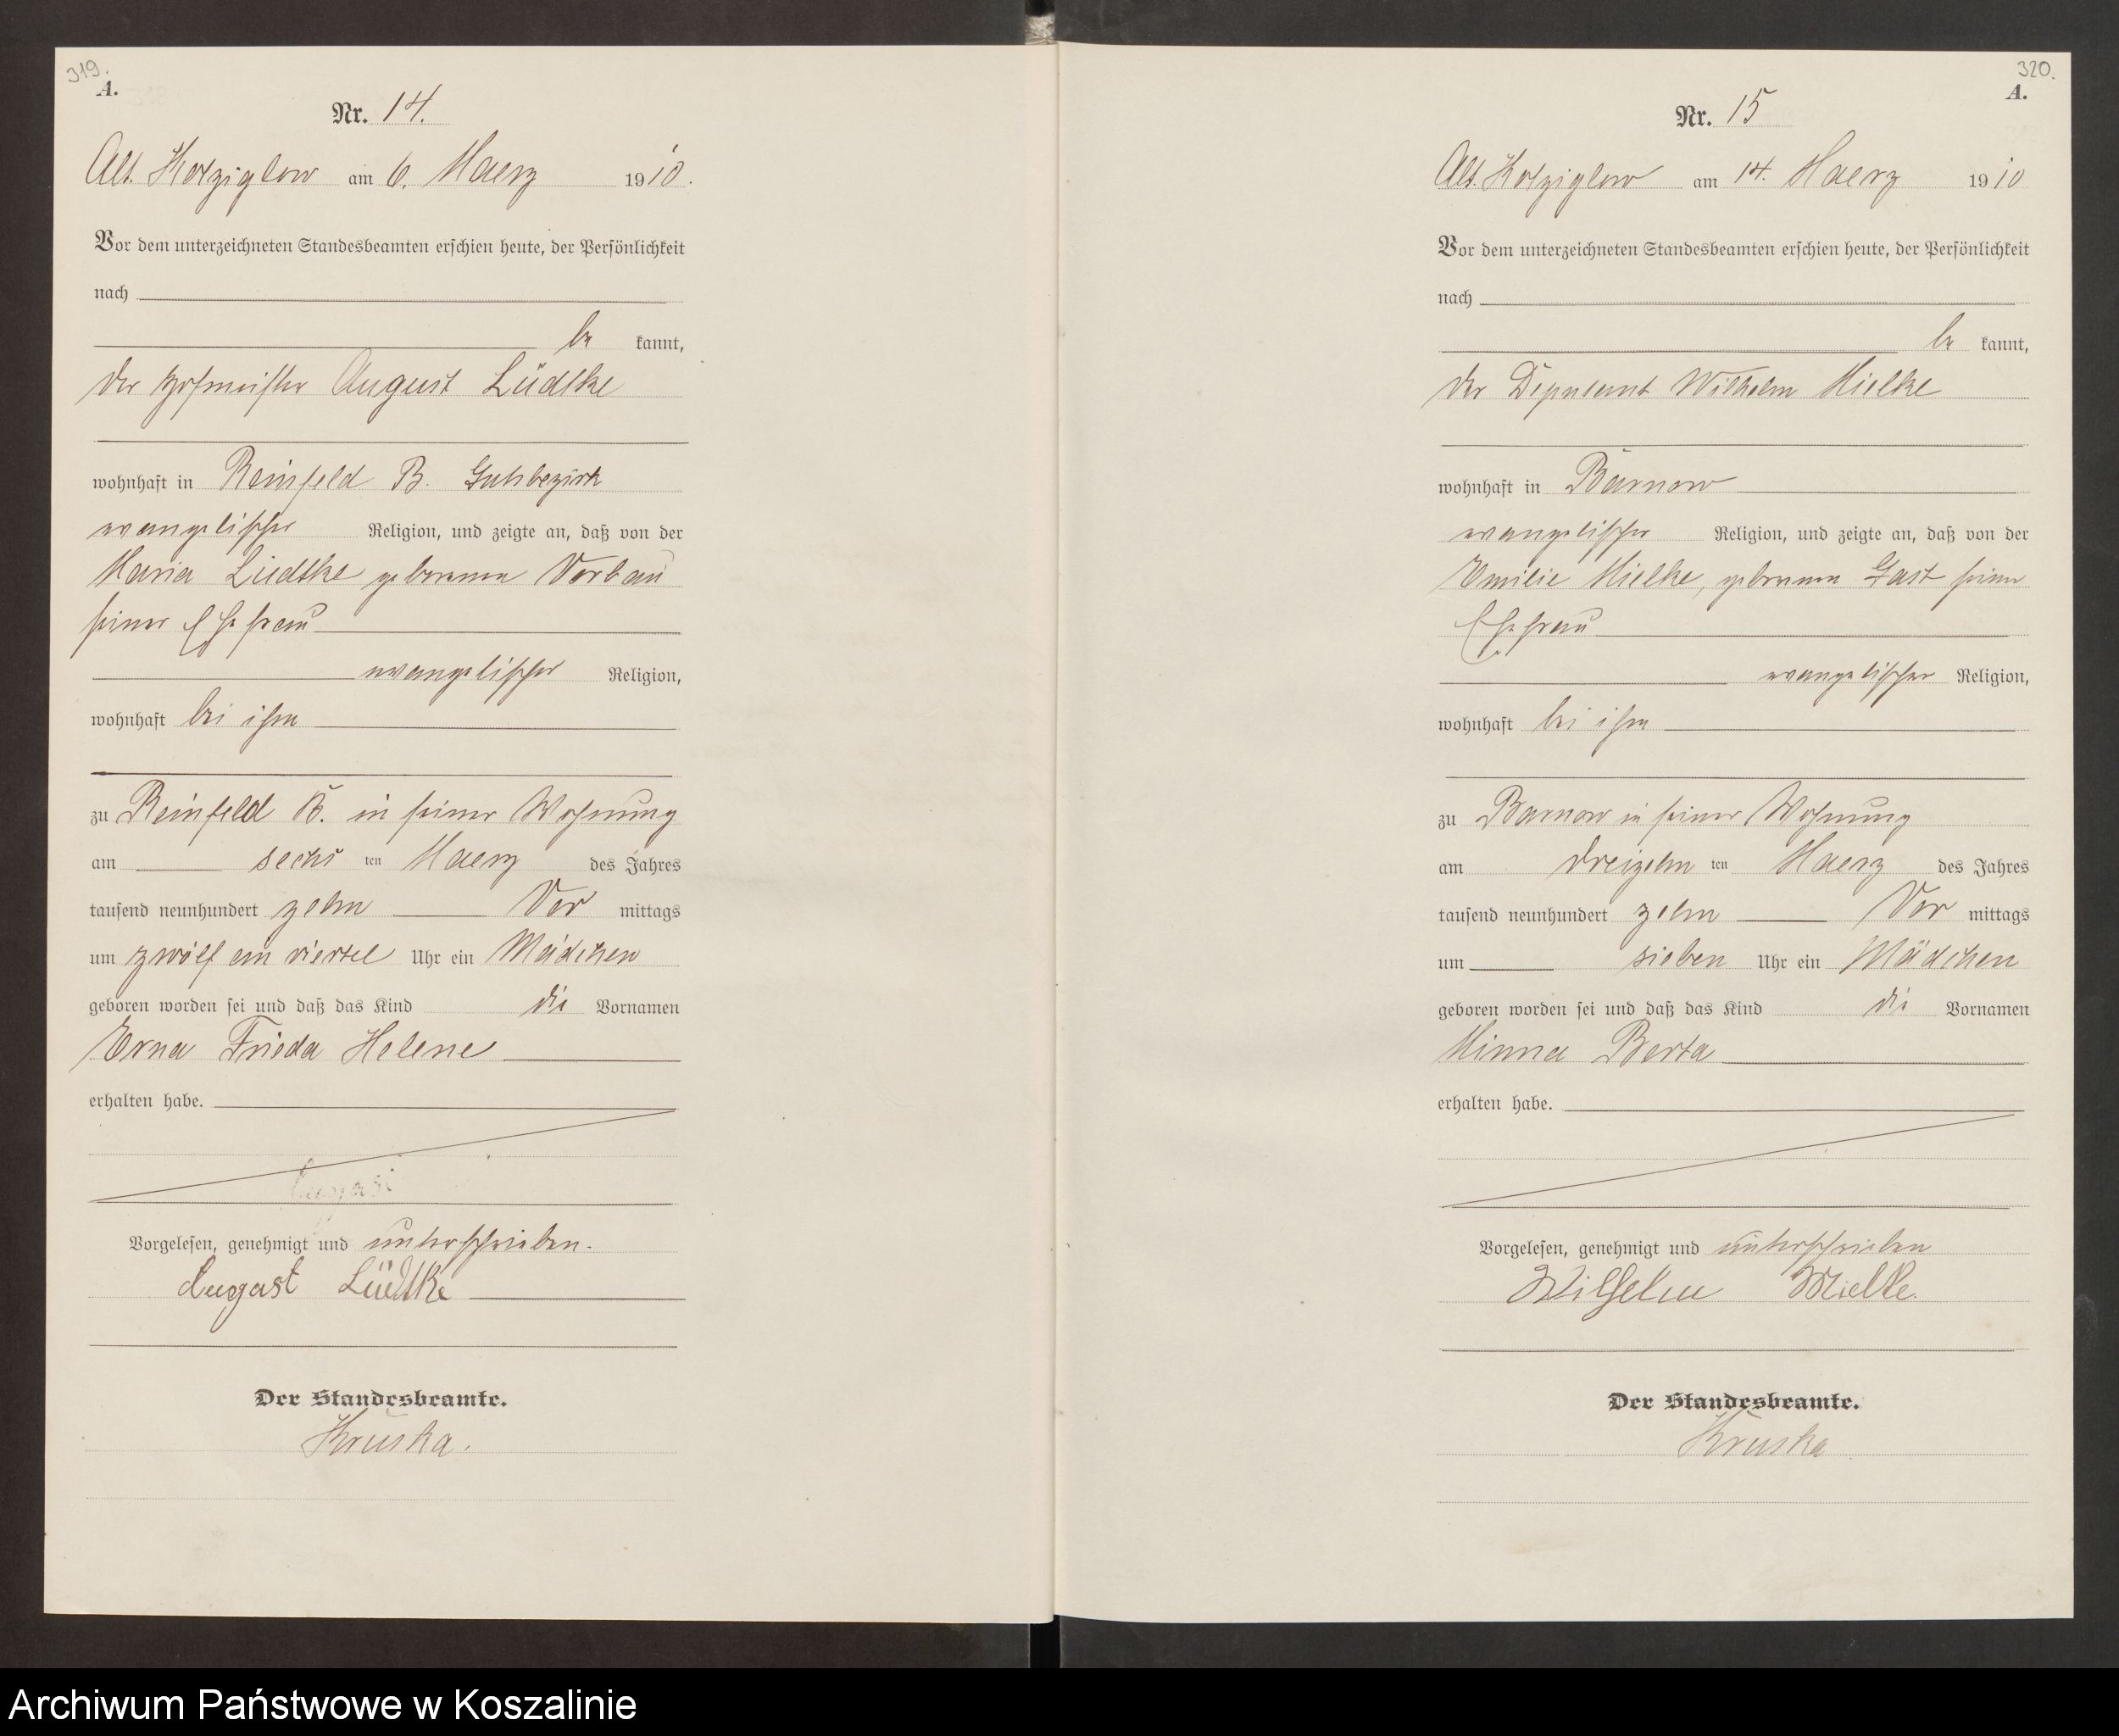 319.
A.
Nr. 14.
Alt. Kolziglow am 6. Maerz 1910.
Vor dem unterzeichneten Standesbeamten erschien heute, der Persönlichkeit
nach
be kannt,
der Hofmeister August Lüdtke
wohnhaft in Reinfeld B. Gutsbezirk
evangelischer Religion, und zeigte an, daß von der
Maria Lüdtke geborenen Vorbau
seiner Ehefrau
evangelischer Religion,
wohnhaft bei ihm
zu Reinfeld B. in seiner Wohnung
am sechs ten Maerz des Jahres
tausend neunhundert zehn Vor mittags
um zwölf ein viertel Uhr ein Mädchen
geboren worden sei und daß das Kind die Vornamen
Erna Frieda Helene
erhalten habe.
Vorgelesen, genehmigt und unterschrieben.
August Lüdtke
Der Standesbeamte.
Kruska.
320.
A.
Nr. 15
Alt. Kolziglow am 14. Maerz 1910
Vor dem unterzeichneten Standesbeamten erschien heute, der Persönlichkeit
nach
be kannt,
der Deputant Wilhelm Mielke
wohnhaft in Barnow
evangelischer Religion, und zeigte an, daß von der
Emilie Mielke, geborenen Gast seiner
Ehefrau
evangelischer Religion,
wohnhaft bei ihm
zu Barnow in seiner Wohnung
am dreizehn ten Maerz des Jahres
tausend neunhundert zehn Vor mittags
um sieben Uhr ein Mädchen
geboren worden sei und daß das Kind die Vornamen
Minna Berta
erhalten habe.
Vorgelesen, genehmigt und unterschrieben
Wilhelm Mielke.
Der Standesbeamte.
Kruska
Archiwum Państwowe w Koszalinie